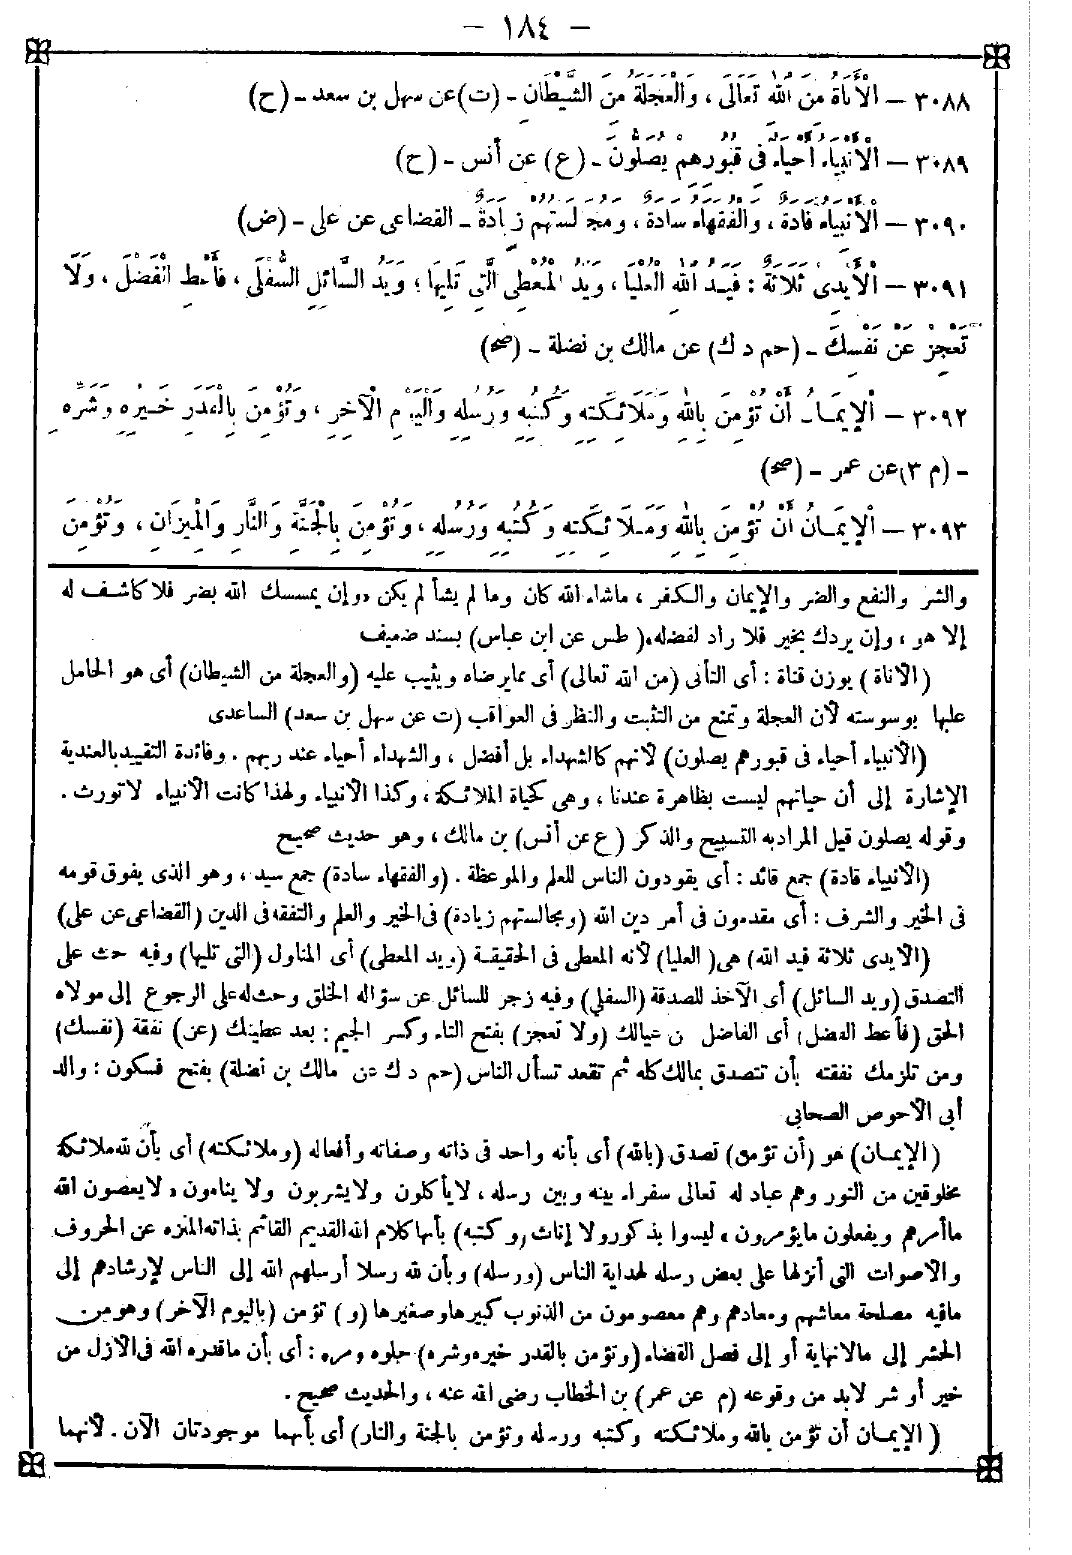 — ١٨٤ —
٣٠٨٨ — الْأَنَاةُ مِنَ اللهِ تَعَالَى ، وَالْعَجَلَةُ مِنَ الشَّيْطَانِ ـ (ت) عن سهل بن سعد ـ (ح)
٣٠٨٩ — الْأَنْبِيَاءُ أَحْيَاءٌ فِي قُبُورِهِمْ يُصَلُّونَ ـ (ع) عن أنس ـ (ح)
٣٠٩٠ — الْأَنْبِيَاءُ قَادَةٌ ، وَالْفُقَهَاءُ سَادَةٌ ، وَمُجَالَسَتُهُمْ زِيَادَةٌ ـ القضاعى عن على ـ (ض)
٣٠٩١ — الْأَيْدِى ثَلَاثَةٌ : فَيَدُ اللهِ الْعُلْيَا ، وَيَدُ الْمُعْطِى الَّتِى تَلِيهَا ؛ وَيَدُ السَّائِلِ السُّفْلَى ، فَأَعْطِ الْفَضْلَ ، وَلَا
تَعْجِزْ عَنْ نَفْسِكَ ـ (حم د ك) عن مالك بن نضلة ـ (صح)
٣٠٩٢ — الْإِيمَانُ أَنْ تُؤْمِنَ بِاللهِ وَمَلَائِكَتِهِ وَكُتُبِهِ وَرُسُلِهِ وَالْيَوْمِ الْآخِرِ ، وَتُؤْمِنَ بِالْقَدَرِ خَيْرِهِ وَشَرِّهِ
ـ (م ٣) عن عمر ـ (صح)
٣٠٩٣ — الْإِيمَانُ أَنْ تُؤْمِنَ بِاللهِ وَمَلَائِكَتِهِ وَكُتُبِهِ وَرُسُلِهِ ، وَتُؤْمِنَ بِالْجَنَّةِ وَالنَّارِ وَالْمِيزَانِ ، وَتُؤْمِنَ
والشر والنفع والضر والإيمان والكفر ، ماشاء الله كان وما لم يشأ لم يكن «وإن يمسسك الله بضر فلا كاشف له
إلا هو ، وإن يردك بخير فلا راد لفضله» (طس عن ابن عباس) بسند ضعيف
(الأناة) بوزن قناة : أى التأنى (من الله تعالى) أى مما يرضاه ويثيب عليه (والعجلة من الشيطان) أى هو الحامل
عليها بوسوسته لأن العجلة وتمنع من التثبت والنظر فى العواقب (ت عن سهل بن سعد) الساعدى
(الأنبياء أحياء فى قبورهم يصلون) لأنهم كالشهداء بل أفضل ، والشهداء أحياء عند ربهم . وفائدة التقييد بالعندية
الإشارة إلى أن حياتهم ليست بظاهرة عندنا ، وهى كحياة الملائكة ، وكذا الأنبياء ولهذا كانت الأنبياء لاتورث .
وقوله يصلون قيل المراد به التسبيح والذكر (ع عن أنس) بن مالك ، وهو حديث صحيح
(الأنبياء قادة) جمع قائد : أى يقودون الناس للعلم والموعظة . (والفقهاء سادة) جمع سيد ، وهو الذى يفوق قومه
فى الخير والشرف : أى مقدمون فى أمر دين الله (ومجالستهم زيادة) فى الخير والعلم والتفقه فى الدين (القضاعى عن على)
(الأيدى ثلاثة فيد الله) هى (العليا) لأنه المعطى فى الحقيقة (ويد المعطى) أى المناول (التى تليها) وفيه حث على
التصدق (ويد السائل) أى الآخذ للصدقة (السفلى) وفيه زجر للسائل عن سؤاله الخلق وحث له على الرجوع إلى مولاه
الحق (فأعط الفضل) أى الفاضل عن عيالك (ولا تعجز) بفتح التاء وكسر الجيم : بعد عطيتك (عن) نفقة (نفسك)
ومن تلزمك نفقته بأن تتصدق بمالك كله ثم تقعد تسأل الناس (حم د ك عن مالك بن نضلة) بفتح فسكون : والد
أبى الأحوص الصحابى
(الإيمان) هو (أن تؤمن) تصدق (بالله) أى بأنه واحد فى ذاته وصفاته وأفعاله (وملائكته) أى بأن لله ملائكة
مخلوقين من النور وهم عباد له تعالى سفراء بينه وبين رسله ، لايأكلون ولايشربون ولا ينامون «لايعصون الله
ماأمرهم ويفعلون مايؤمرون» ليسوا بذكور ولا إناث (وكتبه) بأنها كلام الله القديم القائم بذاته المنزه عن الحروف
والأصوات التى أنزلها على بعض رسله لهداية الناس (ورسله) وبأن لله رسلا أرسلهم الله إلى الناس لإرشادهم إلى
مافيه مصلحة معاشهم ومعادهم وهم معصومون من الذنوب كبيرها وصغيرها (و) تؤمن (باليوم الآخر) وهو من
الحشر إلى مالانهاية أو إلى فصل القضاء (وتؤمن بالقدر خيره وشره) حلوه ومره : أى بأن ماقدره الله فى الأزل من
خير أو شر لابد من وقوعه (م عن عمر) بن الخطاب رضى الله عنه ، والحديث صحيح .
(الإيمان أن تؤمن بالله وملائكته وكتبه ورسله وتؤمن بالجنة والنار) أى بأنهما موجودتان الآن . لأنهما